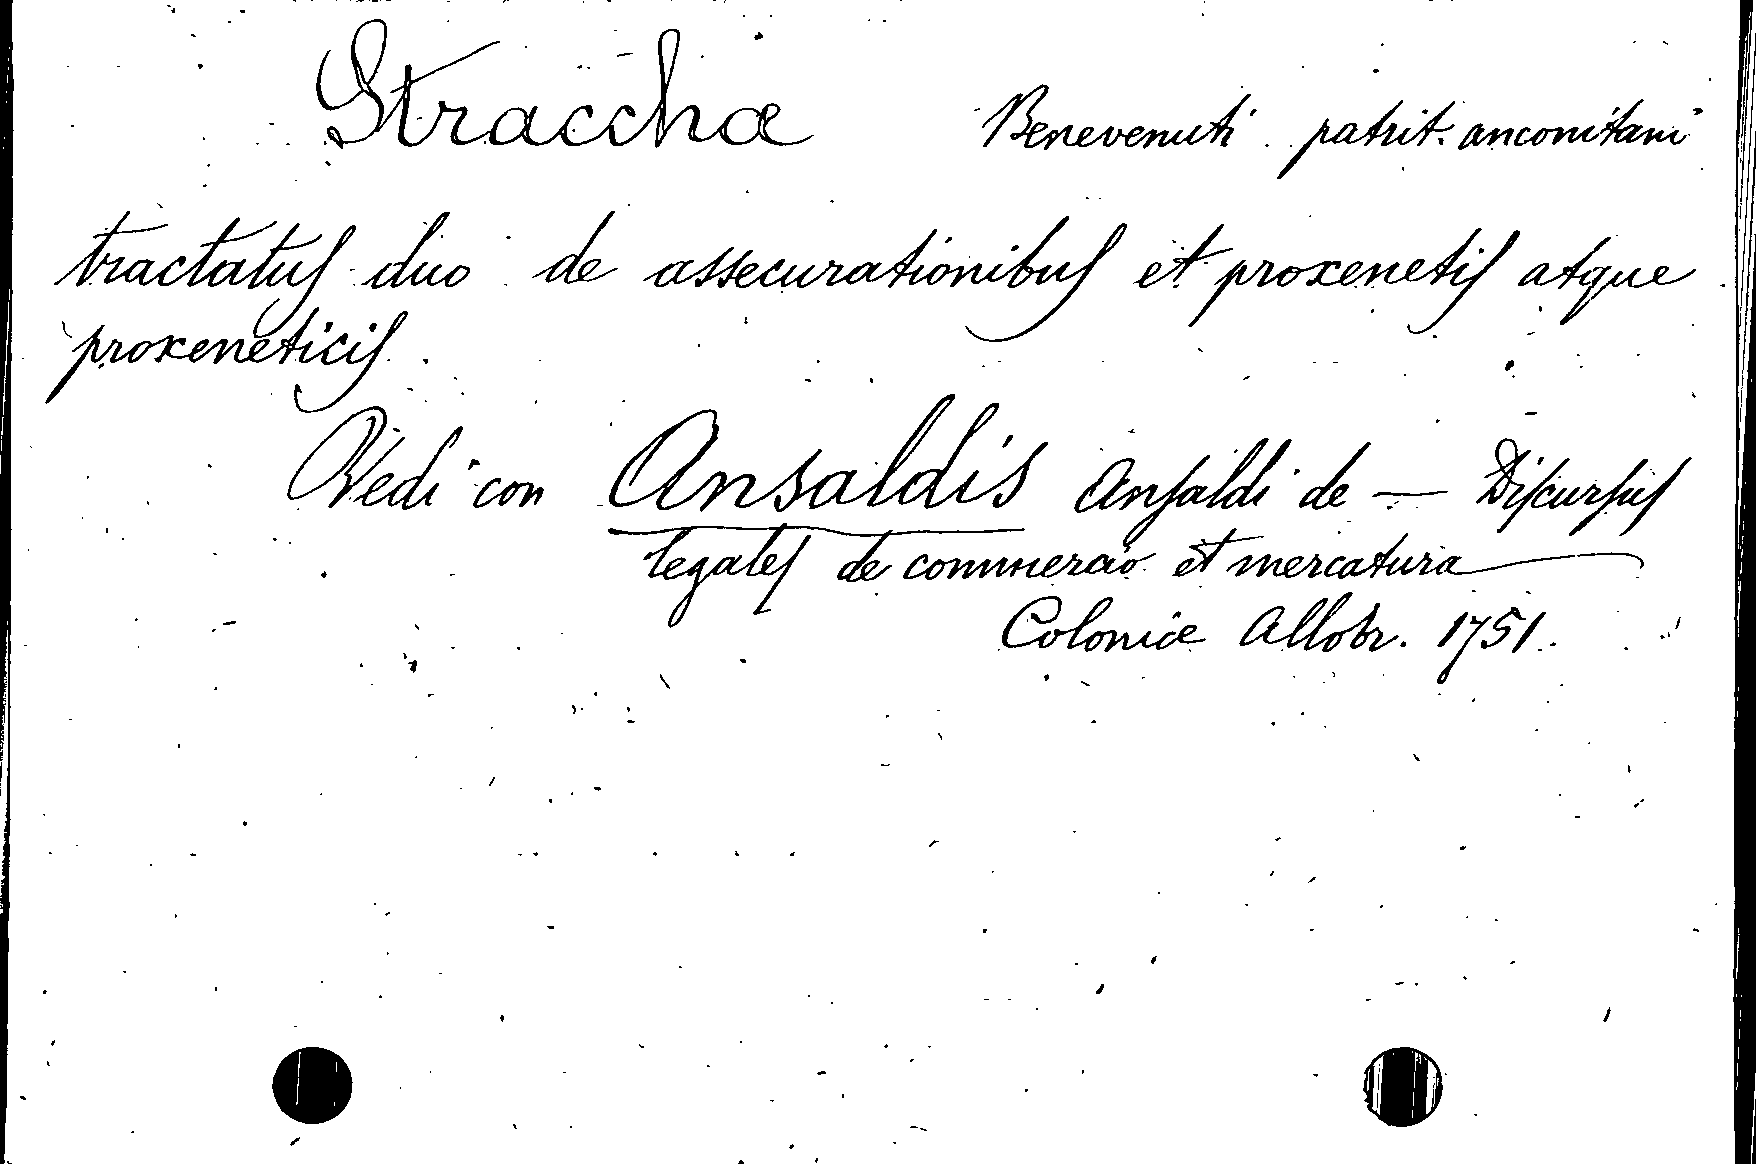 Stracchæ Benevenuti patrit. anconitani
tractatus duo de assecurationibus et proxenetis atque
proxeneticis
Vedi con Ansaldis Ansaldi de — Discursus
legales de commercio et mercatura
Coloniæ Allobr. 1751.